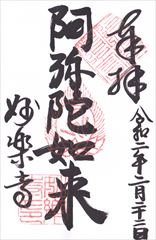 奉拝
令和二年二月廿三日
阿弥陀如来
妙楽寺